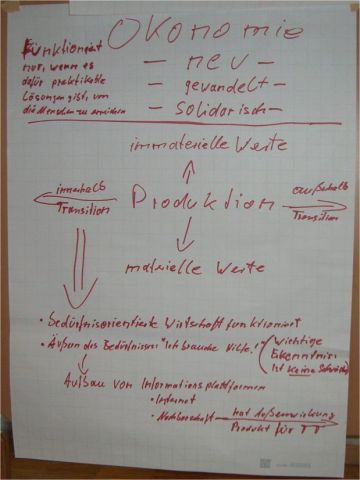 ÖKONOMIE
Funktioniert
nur, wenn es
dafür praktikable
Lösungen gibt, um
die Menschen zu erreichen
— neu —
— gewandelt —
— solidarisch —
immaterielle Werte
innerhalb
Transition
Produktion
außerhalb
Transition
materielle Werte
• bedürfnisorientierte Wirtschaft funktioniert
• Äußern des Bedürfnisses "Ich brauche Hilfe!"
wichtige
Erkenntnis:
ist keine Schwäche
Aufbau von Informationsplattformen
• Internet
• Nachbarschaft
hat Außenwirkung
Produkt für TT